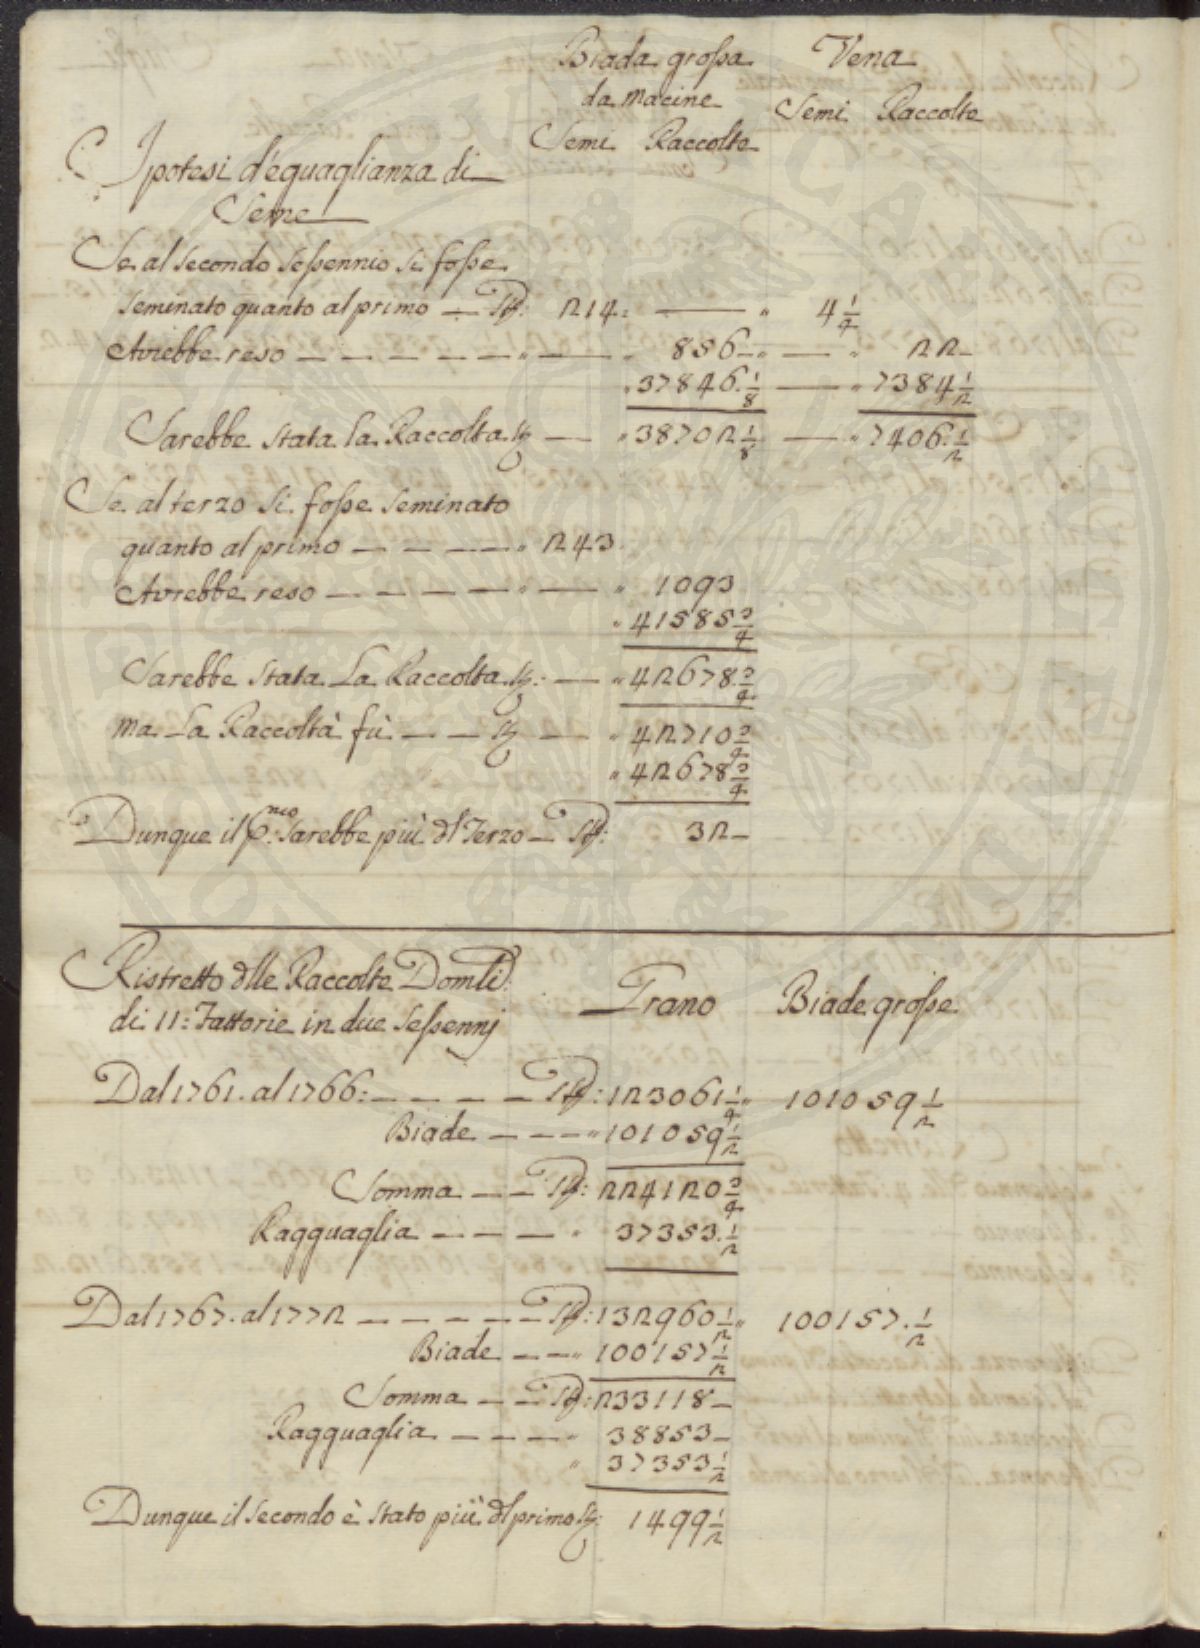 Biada grossa Vena
da macine Semi Raccolte
Semi Raccolte
Ipotesi d'eguaglianza di
Seme
Se al secondo Sessennio si fosse
seminato quanto al primo — 214: — " 4 1/4
Avrebbe reso — — — — — " — " 856 — " — " 22 —
" 37846. 1/8 — " 7384 1/2
Sarebbe stata la Raccolta — " 38702 1/8 — " 7406. 1/2
Se al terzo si fosse seminato
quanto al primo — — — — " 243
Avrebbe reso — — — — — " — " 1093
" 41585 3/4
Sarebbe stata La Raccolta : — " 42678. 3/4
ma La Raccolta fù — — — " 42710 3/4
" 42678 3/4
Dunque il 6.nio sarebbe più dl Terzo — 32 —
Ristretto dlle Raccolte Domli
di 11: Fattorie in due Sessennj Grano Biade grosse
Dal 1761. al 1766: — — — — : 123061 1/4 " 101059 1/2
Biade — — — " 101059 1/2
Somma — — : 224120 3/4
Ragguaglia — — — " 37353. 1/2
Dal 1767. al 1772 — — — — — : 132960 1/2 " 100157. 1/2
Biade — — " 100157 1/2
Somma — — : 233118 —
Ragguaglia — — — — " 38853 —
" 37353 1/2
Dunque il secondo è stato più dl primo : 1499 1/2